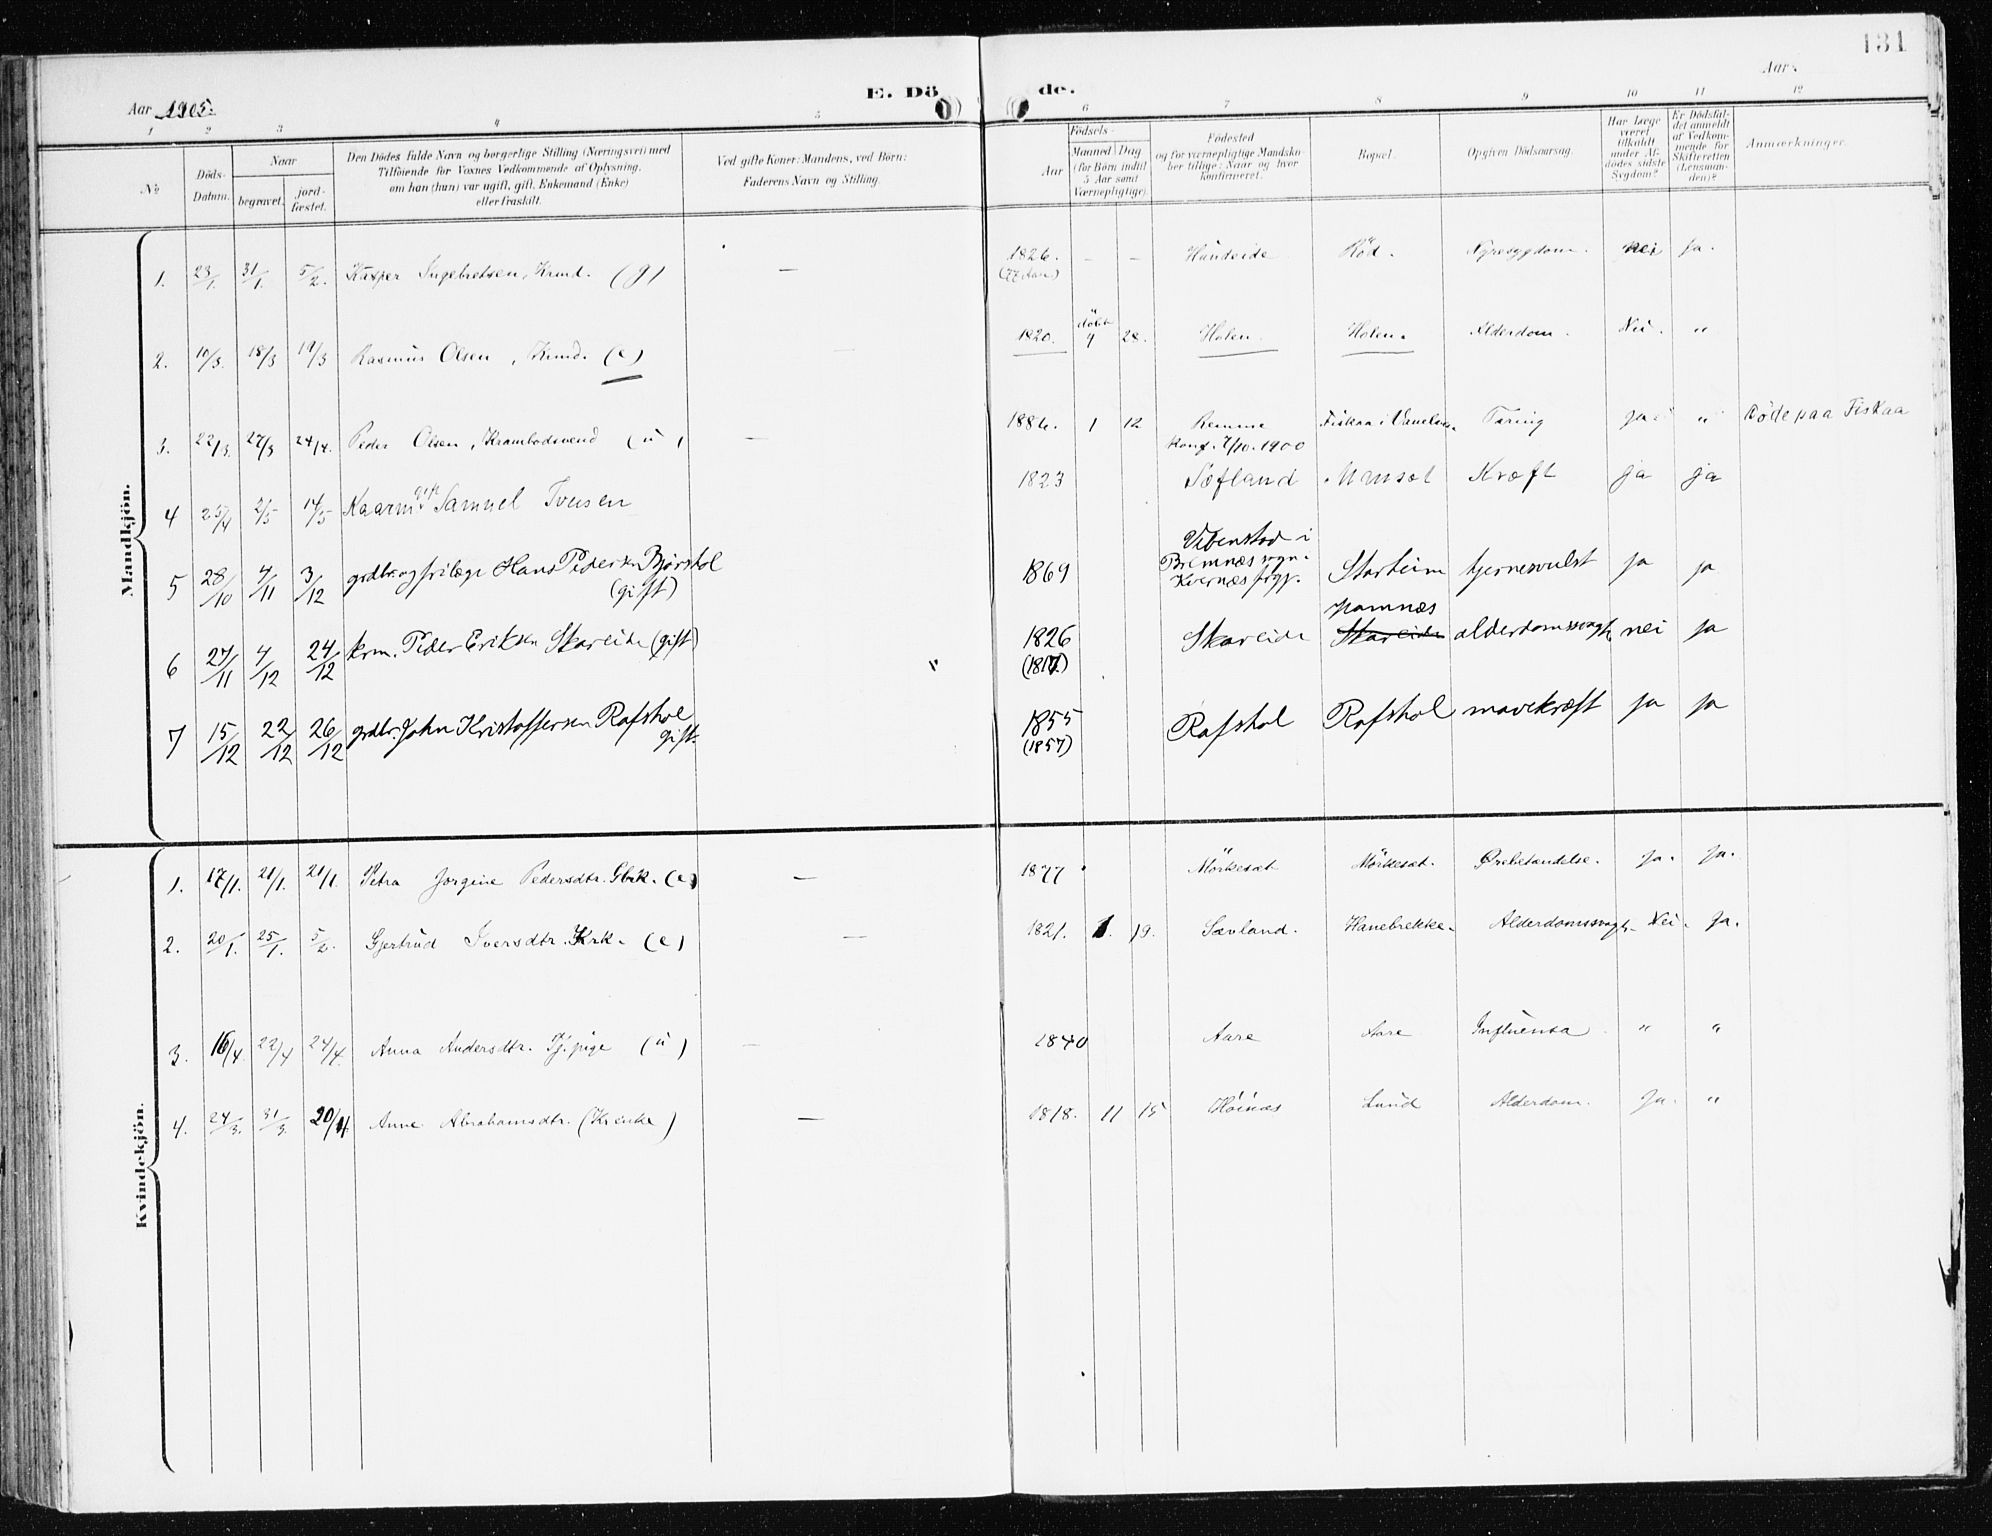 131
E. Døde.
Aar 1905.
Aar
1 2 3 4 5 6 7 8 9 10 11 12
No
Døds-Datum.
Naar
begravet.
jord-fæstet.
Den Dödes fulde Navn og borgerlige Stilling (Næringsvei) med
Tilföiende for Voxnes Vedkommende af Oplysning,
om han (hun) var ugift, gift, Enkemand (Enke)
eller fraskilt.
Ved gifte Koner: Mandens, ved Börn:
Faderens Navn og Stilling.
Födsels-
Aar
Maaned Dag
(for Börn indtil
5 Aar samt
Værnepligtige).
Födested
og for værnepligtige Mandskaber tillige: Naar og hvor
konfirmeret.
Bopæl.
Opgiven Dödsaarsag.
Har Læge
været
tilkaldt
under Afdödes sidste
Sygdom?
Er Dödsfaldet anmeldt
af Vedkommende for
Skifteretten
(Lensmanden)?
Anmærkninger.
Mandkjön.
1. 23/1. 31/1. 5/2. Kasper Ingebretsen, Krmd. (g) — 1826. (77 Aar) - - Hundeide Röd. Nyresygdom. Nei Ja.
2. 10/3. 18/3 19/3 Rasmus Olsen, Krmd. (e) — 1820. döbt 4 28. Holen. Holen. Alderdom. Nei. "
3. 22/3. 27/3 24/4. Peder Olsen, Krambodsvend (u) — 1886. 1 12 Remme Konf. 7/10. 1900 Fiskaa i Tæring ja " Döde paa Fiskaa
4 25/4 2/5 14/5 Kaarm. gift Samuel Iversen 1823 Sæfland Kræft ja ja
5 28/10 4/11 3/12 grdbr. og frilæge Hans Pedersen Bjørshol (gift) 1869 i Bremnæs sogn Kvernæs prgj. Starheim hjernesvulst ja ja
6 27/11 4/12 24/12 krm. Peder Eriksen Skareide (gift) " 1826 (1817) Skareide Skareide alderdomssvagh. nei ja
7 15/12 22/12 26/12 grdbr. John Kristoffersen Rafshol gift 1855 (1857) Rafshol Rafshol mavekræft ja ja
Kvindekjön.
1. 17/1. 21/1. 21/1. Petra Jorgine Pedersdtr. Gbrk. (e) — 1877 Mörkesæt Mörkesæt. Ørebetændelse. Ja. Ja.
2. 20/1. 25/1. 5/2. Gjertrud Iversdtr. Krk. (e) — 1821. 1. 19. Sævland. Hanebrekke. Alderdomssvagh. Nei. Ja.
3. 16/4. 22/4 24/4. Anna Andersdtr. Tj.pige (u) — 1840 Aare Aare Influensa. " "
4. 24/3. 31/3. 20/4. Anne Abrahamsdtr. (Krenke) — 1818. 11 15 Höinæs Lund Alderdom. Ja. "